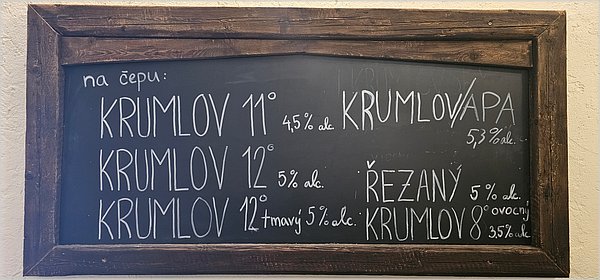 na čepu:
KRUMLOV 11° 4,5% alc.
KRUMLOV 12° 5% alc.
KRUMLOV 12° tmavý 5% alc.
KRUMLOV/APA
5,3% alc.
ŘEZANÝ 5% alc.
KRUMLOV 8° ovocný
3,5% alc